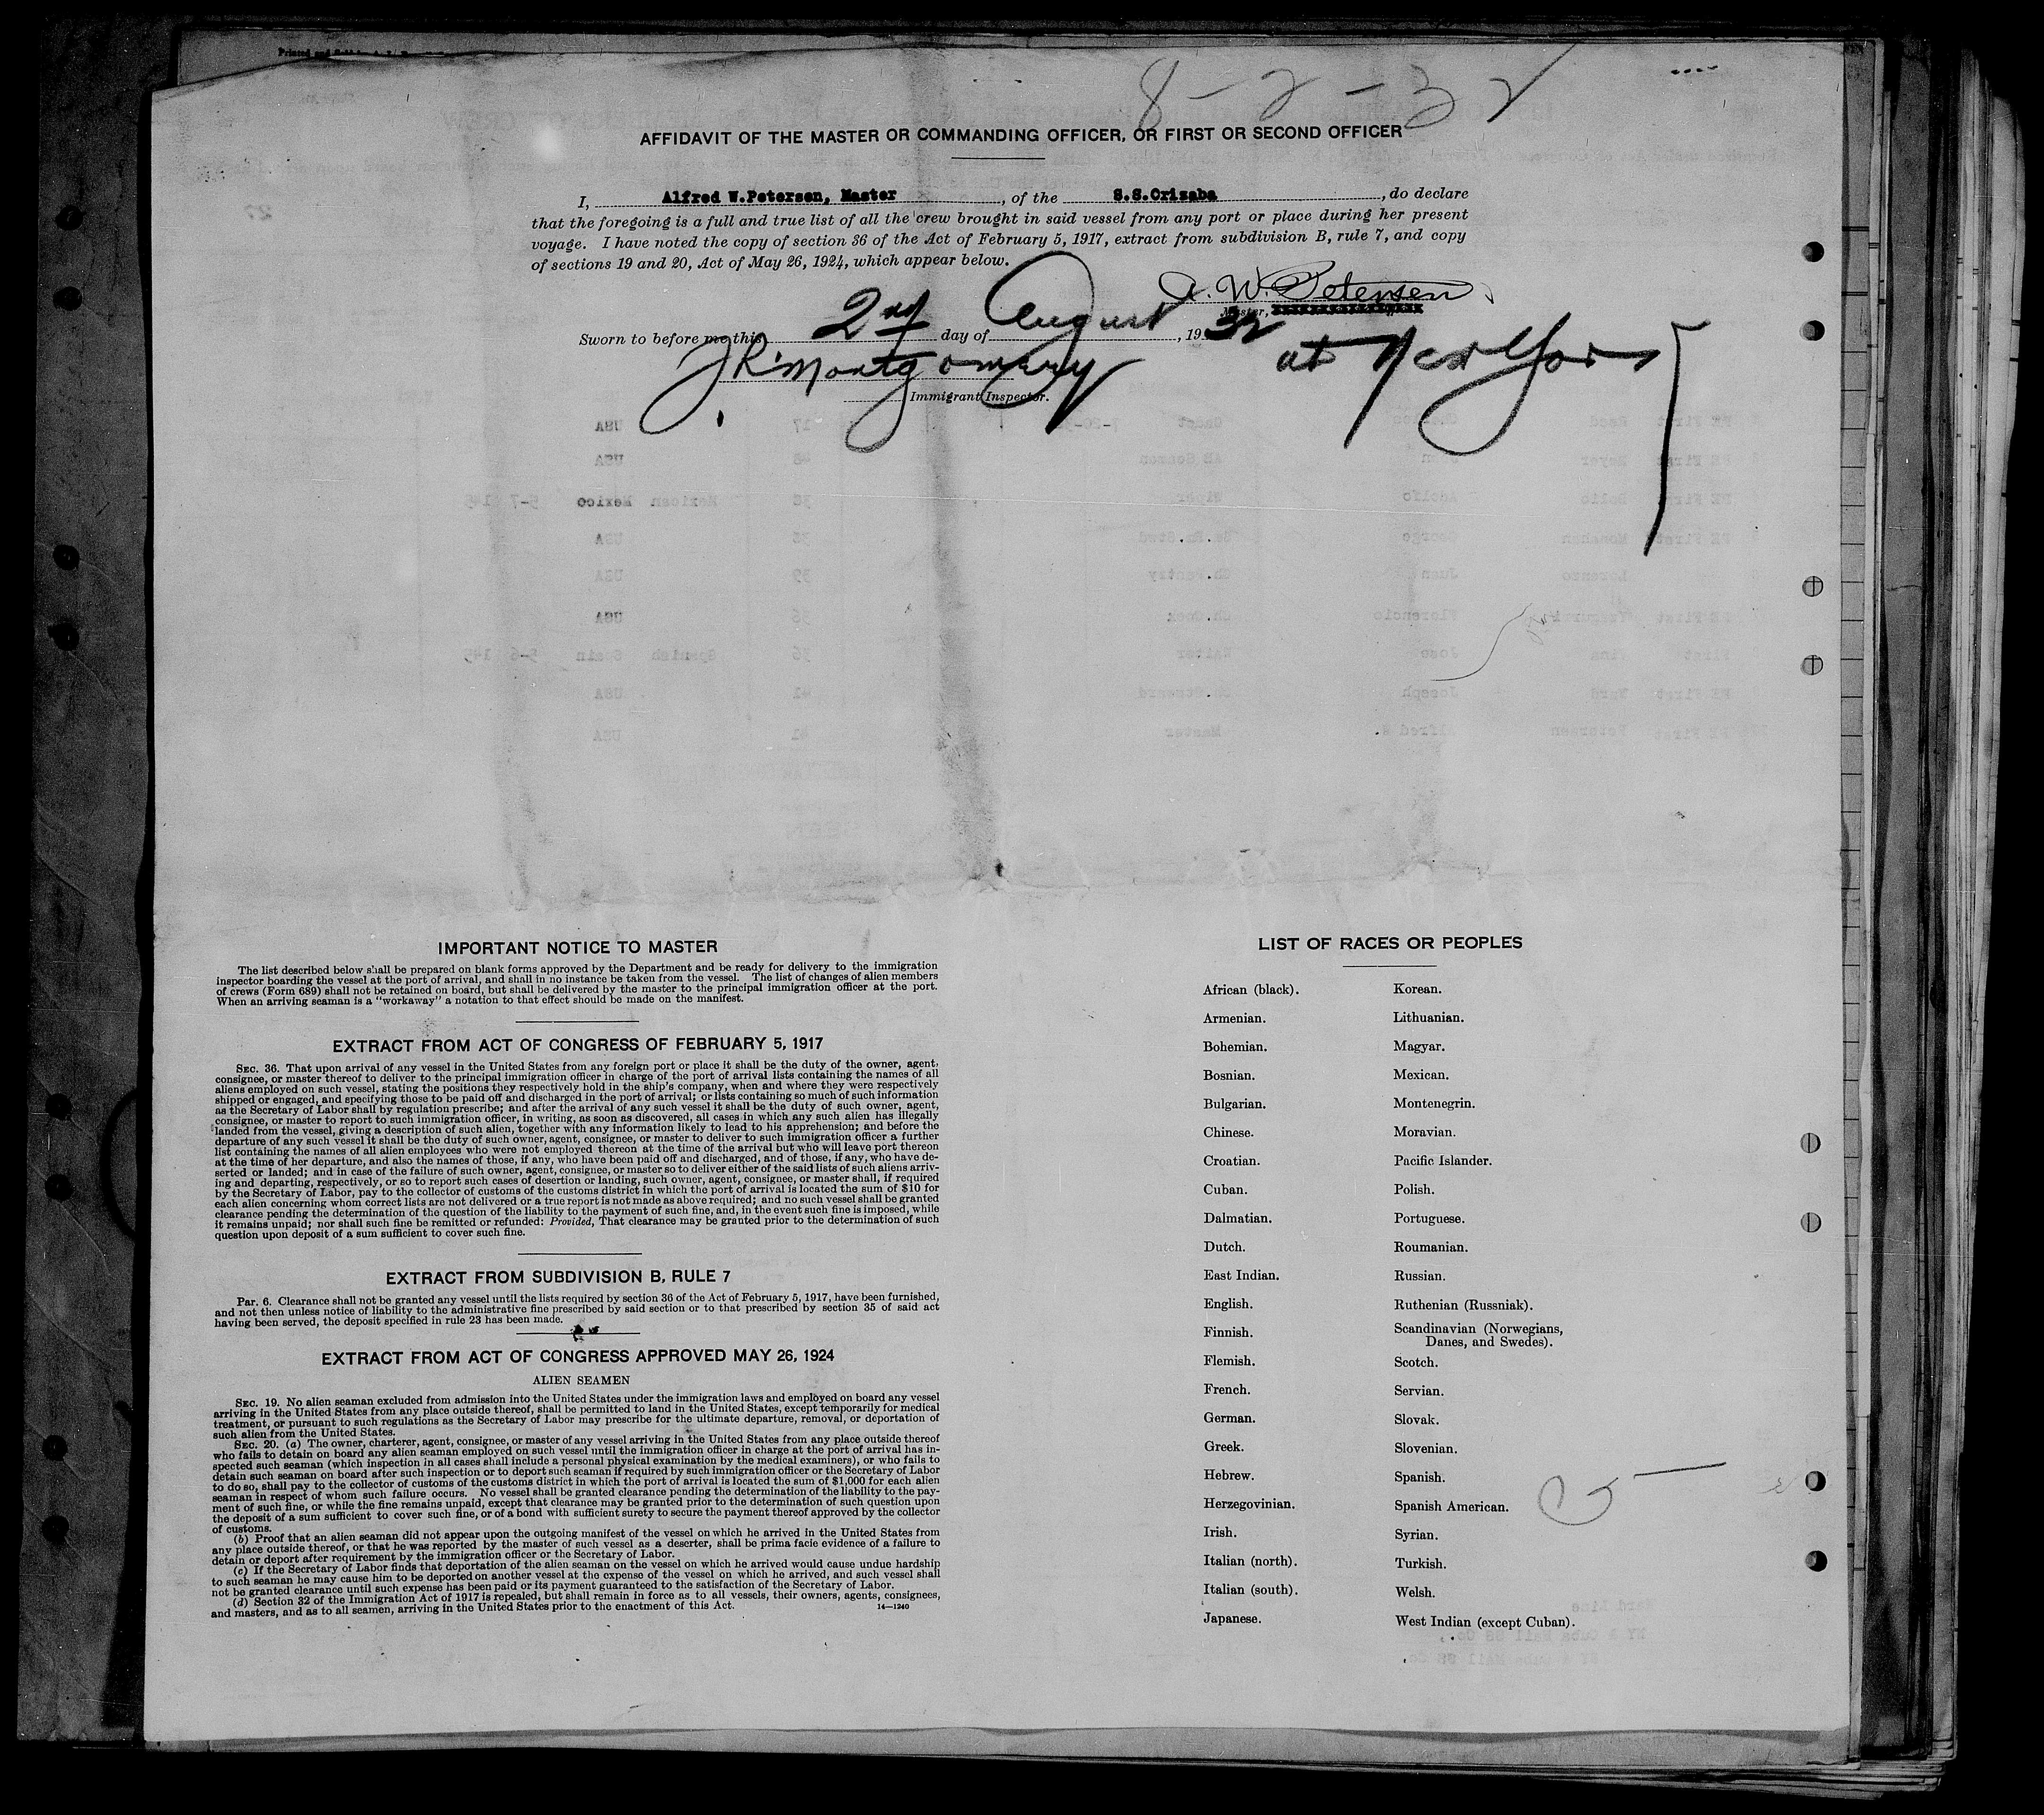 8-2-32
AFFIDAVIT OF THE MASTER OR COMMANDING OFFICER, OR FIRST OR SECOND OFFICER
I, Alfred W.Petersen, Master, of the S.S.Orizaba, do declare
that the foregoing is a full and true list of all the crew brought in said vessel from any port or place during her present
voyage. I have noted the copy of section 36 of the Act of February 5, 1917, extract from subdivision B, rule 7, and copy
of sections 19 and 20, Act of May 26, 1924, which appear below.
A. W. Petersen
Master,
Sworn to before me this 2nd day of August, 1932 at New York
J R Montgomery
Immigrant Inspector.
IMPORTANT NOTICE TO MASTER
The list described below shall be prepared on blank forms approved by the Department and be ready for delivery to the immigration
inspector boarding the vessel at the port of arrival, and shall in no instance be taken from the vessel. The list of changes of alien members
of crews (Form 689) shall not be retained on board, but shall be delivered by the master to the principal immigration officer at the port.
When an arriving seaman is a "workaway" a notation to that effect should be made on the manifest.
EXTRACT FROM ACT OF CONGRESS OF FEBRUARY 5, 1917
SEC. 36. That upon arrival of any vessel in the United States from any foreign port or place it shall be the duty of the owner, agent,
consignee, or master thereof to deliver to the principal immigration officer in charge of the port of arrival lists containing the names of all
aliens employed on such vessel, stating the positions they respectively hold in the ship's company, when and where they were respectively
shipped or engaged, and specifying those to be paid off and discharged in the port of arrival; or lists containing so much of such information
as the Secretary of Labor shall by regulation prescribe; and after the arrival of any such vessel it shall be the duty of such owner, agent,
consignee, or master to report to such immigration officer, in writing, as soon as discovered, all cases in which any such alien has illegally
landed from the vessel, giving a description of such alien, together with any information likely to lead to his apprehension; and before the
departure of any such vessel it shall be the duty of such owner, agent, consignee, or master to deliver to such immigration officer a further
list containing the names of all alien employees who were not employed thereon at the time of the arrival but who will leave port thereon
at the time of her departure, and also the names of those, if any, who have been paid off and discharged, and of those, if any, who have de-
serted or landed; and in case of the failure of such owner, agent, consignee, or master so to deliver either of the said lists of such aliens arriv-
ing and departing, respectively, or so to report such cases of desertion or landing, such owner, agent, consignee, or master shall, if required
by the Secretary of Labor, pay to the collector of customs of the customs district in which the port of arrival is located the sum of $10 for
each alien concerning whom correct lists are not delivered or a true report is not made as above required; and no such vessel shall be granted
clearance pending the determination of the question of the liability to the payment of such fine, and, in the event such fine is imposed, while
it remains unpaid; nor shall such fine be remitted or refunded: Provided, That clearance may be granted prior to the determination of such
question upon deposit of a sum sufficient to cover such fine.
EXTRACT FROM SUBDIVISION B, RULE 7
PAR. 6. Clearance shall not be granted any vessel until the lists required by section 36 of the Act of February 5, 1917, have been furnished,
and not then unless notice of liability to the administrative fine prescribed by said section or to that prescribed by section 35 of said act
having been served, the deposit specified in rule 23 has been made.
EXTRACT FROM ACT OF CONGRESS APPROVED MAY 26, 1924
ALIEN SEAMEN
SEC. 19. No alien seaman excluded from admission into the United States under the immigration laws and employed on board any vessel
arriving in the United States from any place outside thereof, shall be permitted to land in the United States, except temporarily for medical
treatment, or pursuant to such regulations as the Secretary of Labor may prescribe for the ultimate departure, removal, or deportation of
such alien from the United States.
SEC. 20. (a) The owner, charterer, agent, consignee, or master of any vessel arriving in the United States from any place outside thereof
who fails to detain on board any alien seaman employed on such vessel until the immigration officer in charge at the port of arrival has in-
spected such seaman (which inspection in all cases shall include a personal physical examination by the medical examiners), or who fails to
detain such seaman on board after such inspection or to deport such seaman if required by such immigration officer or the Secretary of Labor
to do so, shall pay to the collector of customs of the customs district in which the port of arrival is located the sum of $1,000 for each alien
seaman in respect of whom such failure occurs. No vessel shall be granted clearance pending the determination of the liability to the pay-
ment of such fine, or while the fine remains unpaid, except that clearance may be granted prior to the determination of such question upon
the deposit of a sum sufficient to cover such fine, or of a bond with sufficient surety to secure the payment thereof approved by the collector
of customs.
(b) Proof that an alien seaman did not appear upon the outgoing manifest of the vessel on which he arrived in the United States from
any place outside thereof, or that he was reported by the master of such vessel as a deserter, shall be prima facie evidence of a failure to
detain or deport after requirement by the immigration officer or the Secretary of Labor.
(c) If the Secretary of Labor finds that deportation of the alien seaman on the vessel on which he arrived would cause undue hardship
to such seaman he may cause him to be deported on another vessel at the expense of the vessel on which he arrived, and such vessel shall
not be granted clearance until such expense has been paid or its payment guaranteed to the satisfaction of the Secretary of Labor.
(d) Section 32 of the Immigration Act of 1917 is repealed, but shall remain in force as to all vessels, their owners, agents, consignees,
and masters, and as to all seamen, arriving in the United States prior to the enactment of this Act.
14—1240
LIST OF RACES OR PEOPLES
African (black). Korean.
Armenian. Lithuanian.
Bohemian. Magyar.
Bosnian. Mexican.
Bulgarian. Montenegrin.
Chinese. Moravian.
Croatian. Pacific Islander.
Cuban. Polish.
Dalmatian. Portuguese.
Dutch. Roumanian.
East Indian. Russian.
English. Ruthenian (Russniak).
Finnish. Scandinavian (Norwegians,
Danes, and Swedes).
Flemish. Scotch.
French. Servian.
German. Slovak.
Greek. Slovenian.
Hebrew. Spanish.
Herzegovinian. Spanish American.
Irish. Syrian.
Italian (north). Turkish.
Italian (south). Welsh.
Japanese. West Indian (except Cuban).